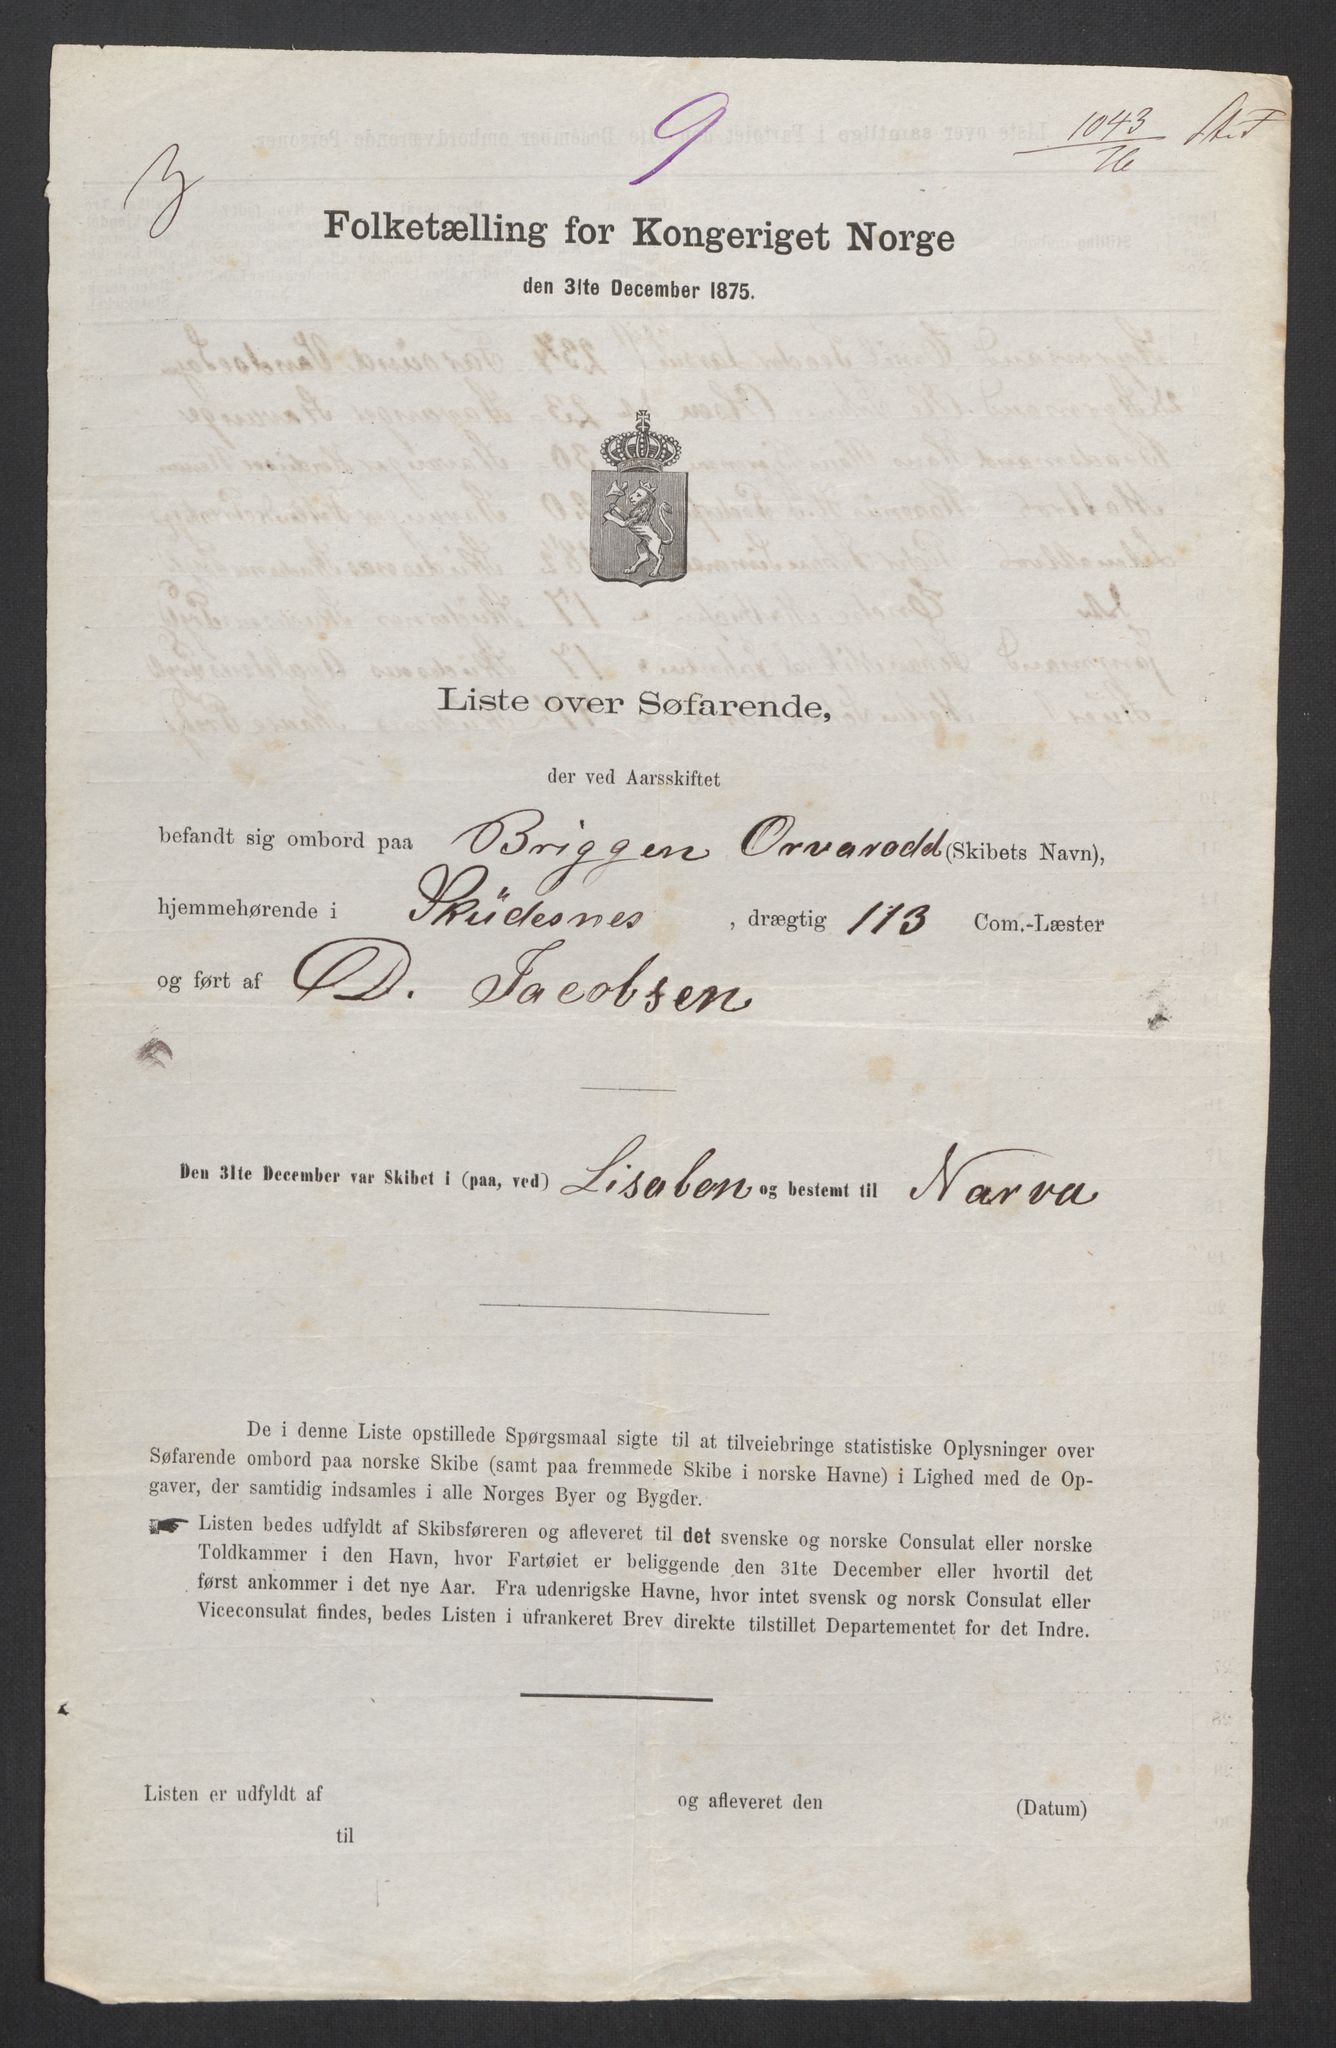 9
1043
76
Folketælling for Kongeriget Norge
den 31te December 1875.
Liste over Søfarende,
der ved Aarsskiftet
befandt sig ombord paa Briggen Orvarodd (Skibets Navn),
hjemmehørende i Skudesnes, drægtig 113 Com.-Læster
og ført af D. Jacobsen
Den 31te December var Skibet i (paa, ved) Lisabon og bestemt til Narva
De i denne Liste opstillede Spørgsmaal sigte til at tilveiebringe statistiske Oplysninger over
Søfarende ombord paa norske Skibe (samt paa fremmede Skibe i norske Havne) i Lighed med de Op-
gaver, der samtidig indsamles i alle Norges Byer og Bygder.
Listen bedes udfyldt af Skibsføreren og afleveret til det svenske og norske Consulat eller norske
Toldkammer i den Havn, hvor Fartøiet er beliggende den 31te December eller hvortil det
først ankommer i det nye Aar. Fra udenrigske Havne, hvor intet svensk og norsk Consulat eller
Viceconsulat findes, bedes Listen i ufrankeret Brev direkte tilstillet Departementet for det Indre.
Listen er udfyldt af og afleveret den (Datum)
til